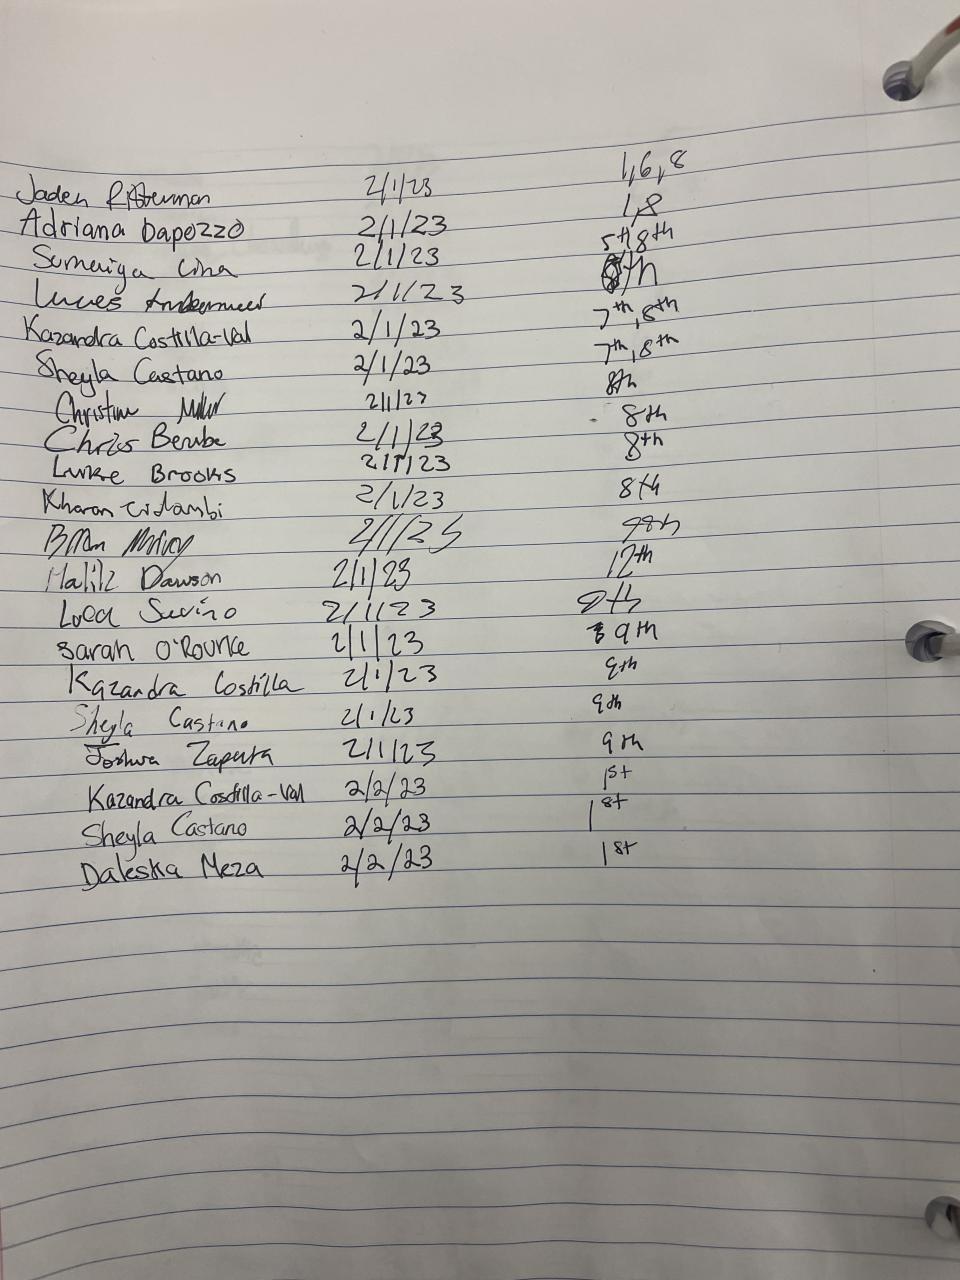 Jaden Ritterman 2/1/23 1,6,8
Adriana Dapozzo 2/1/23 1,8
Sumaiya 2/1/23 5th 8th
Lucas 2/1/23 8th
Kazandra Costilla-Val 2/1/23 7th, 8th
Sheyla Castano 2/1/23 7th, 8th
Christine 2/1/23 8th
Chris Berube 2/1/23 8th
Luke Brooks 2/1/23 8th
Kharon 2/1/23 8th
2/1/23
Dawson 2/1/23 12th
2/1/23 8th
Sarah O'Rourke 2/1/23 9th
Kazandra Costilla 2/1/23 9th
Sheyla Castano 2/1/23 9th
Joshua Zapata 2/1/23 9th
Kazandra Costilla-Val 2/2/23 1st
Sheyla Castano 2/2/23 1st
Daleska Meza 2/2/23 1st